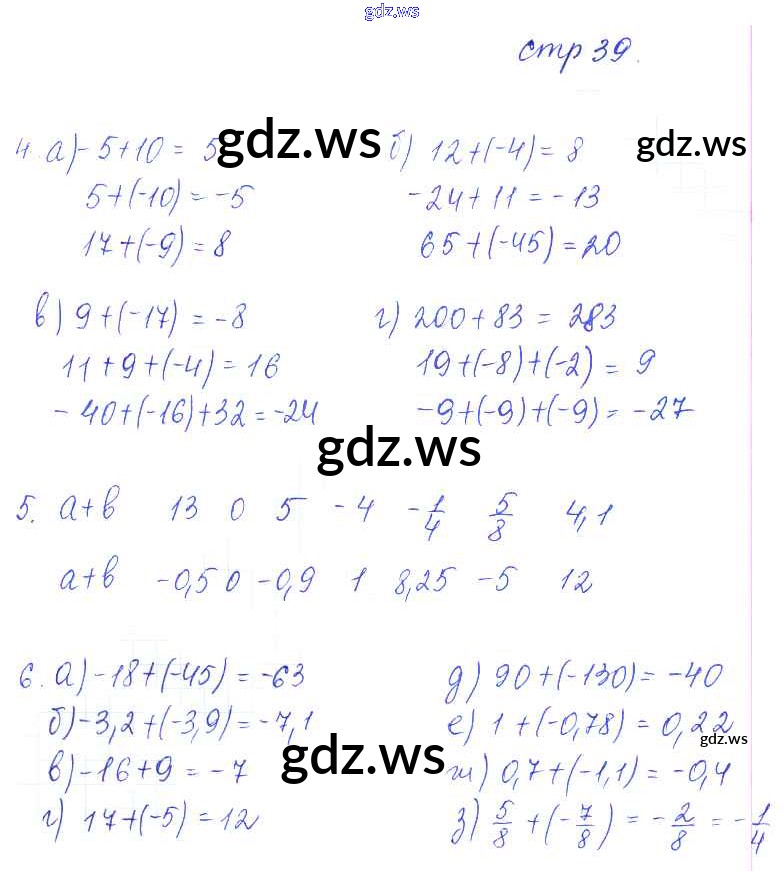 gdz.ws
стр 39.
4. а) -5+10 = 5 gdz.ws б) 12+(-4) = 8 gdz.ws
5+(-10) = -5 -24+11 = -13
17+(-9) = 8 65+(-45) = 20
в) 9+(-17) = -8 г) 200+83 = 283
11+9+(-4) = 16 19+(-8)+(-2) = 9
-40+(-16)+32 = -24 -9+(-9)+(-9) = -27
gdz.ws
5. a+b 13 0 5 -4 -1/4 5/8 4,1
a+b -0,5 0 -0,9 1 8,25 -5 12
6. а) -18+(-45) = -63 д) 90+(-130) = -40
б) -3,2+(-3,9) = -7,1 е) 1+(-0,78) = 0,22
gdz.ws gdz.ws
в) -16+9 = -7 ж) 0,7+(-1,1) = -0,4
г) 17+(-5) = 12 з) 5/8 + (-7/8) = -2/8 = -1/4